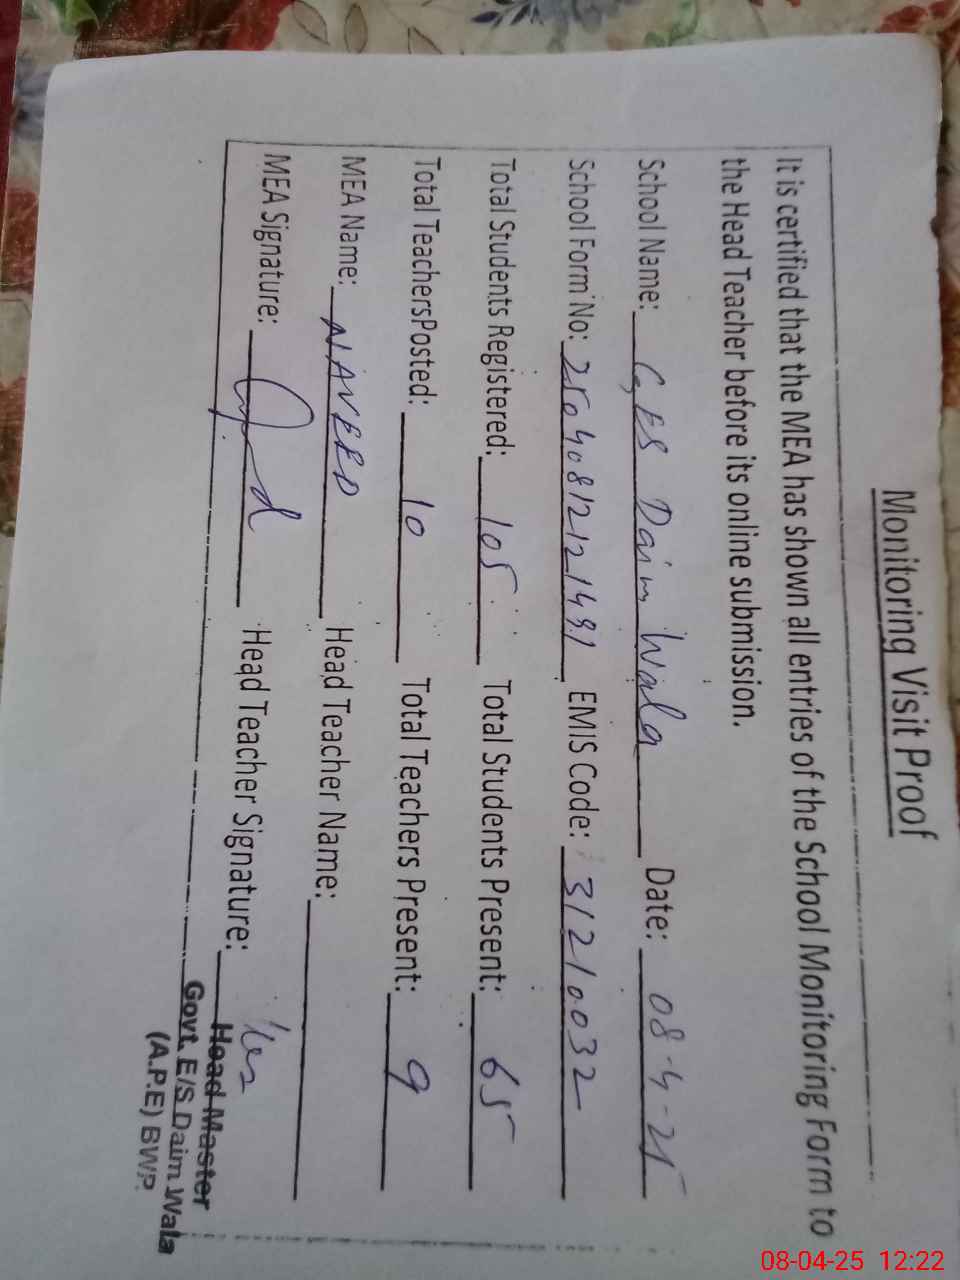 Monitoring Visit Proof
It is certified that the MEA has shown all entries of the School Monitoring Form to
the Head Teacher before its online submission.
School Name: GES Daim Wala Date: 08-4-25
School Form No: 25040812121491 EMIS Code: 31210032
Total Students Registered: 105 Total Students Present: 65
Total TeachersPosted: 10 Total Teachers Present: 9
MEA Name: NAVEED Head Teacher Name:
MEA Signature: Head Teacher Signature:
Head Master
Govt. E/S Daim Wala
(A.P.E) BWP.
08-04-25 12:22